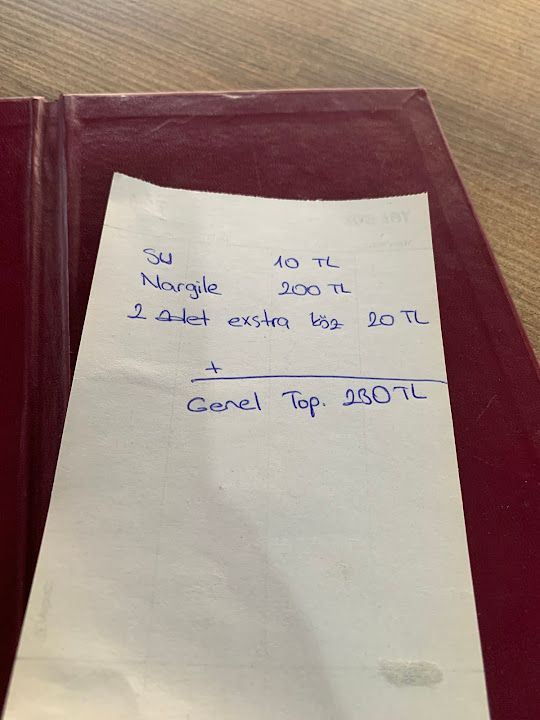 Su 10 TL
Nargile 200 TL
2 adet exstra köz 20 TL
+
Genel Top. 230TL